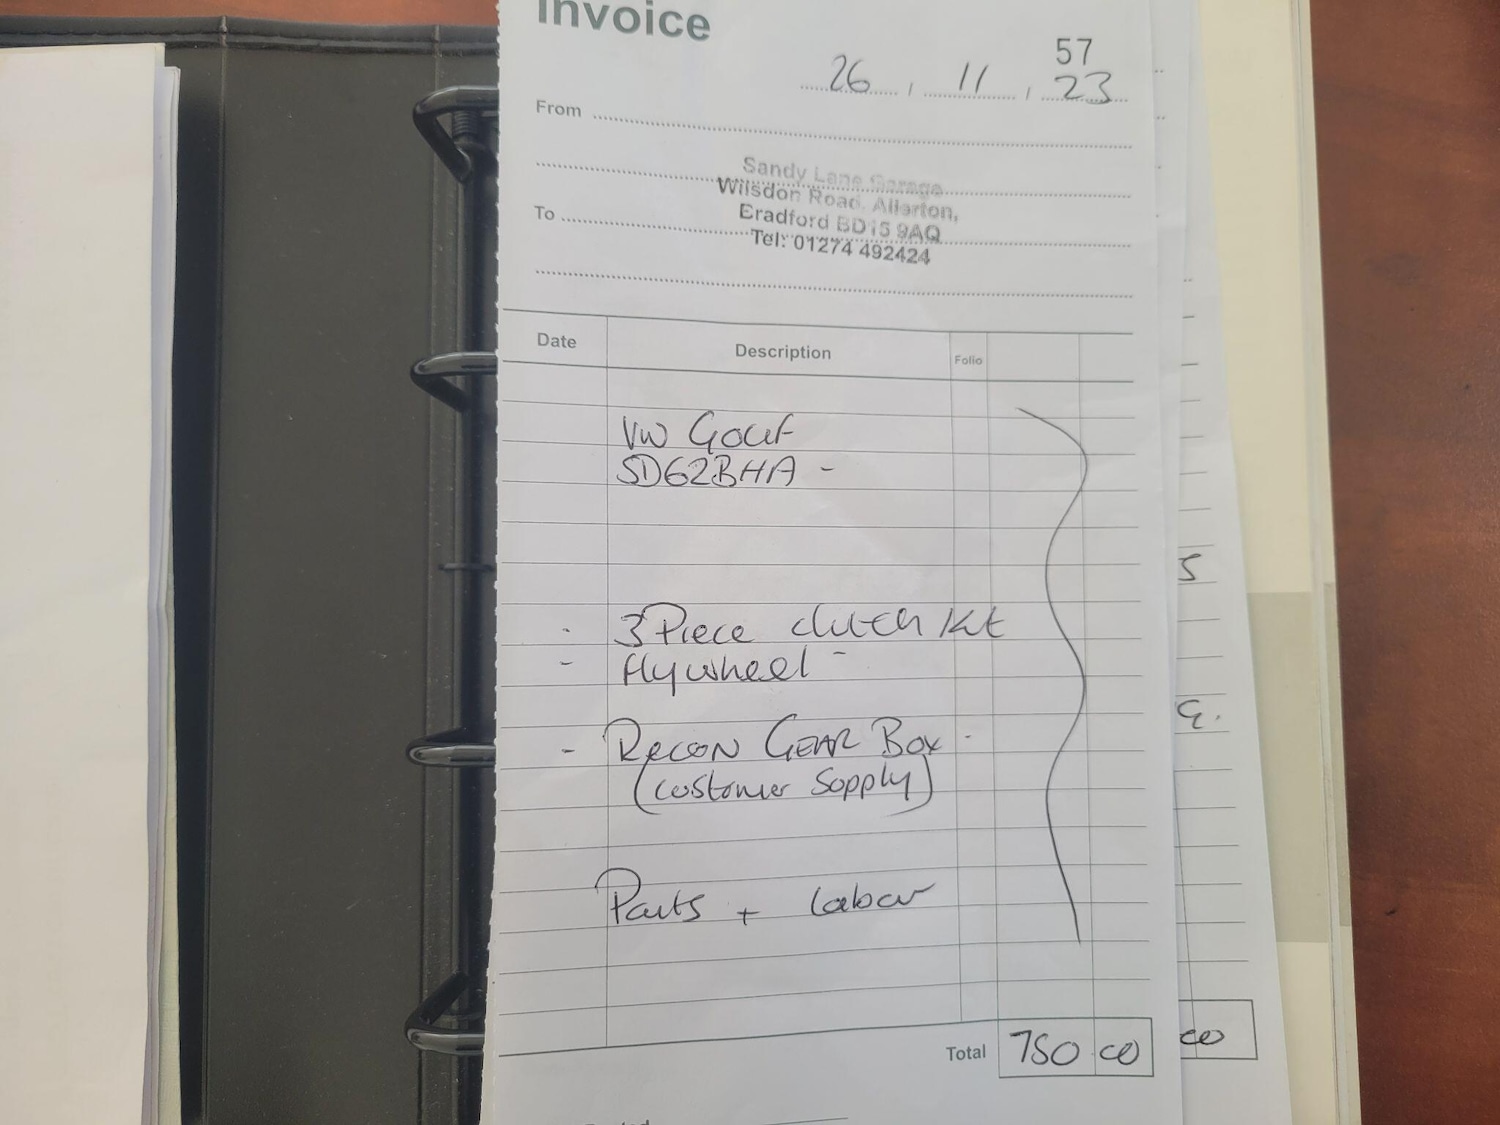 Invoice
57
26 / 11 / 23
From
Sandy Lane Garage
Wilsdon Road, Allerton,
Bradford BD15 9AQ
To
Tel: 01274 492424
Date Description Folio
VW GOLF
SD62BHA -
- 3 Piece clutch kit
- flywheel -
- RECON GEAR BOX -
(customer supply)
Parts + labour
Total 750 00
S
G.
00